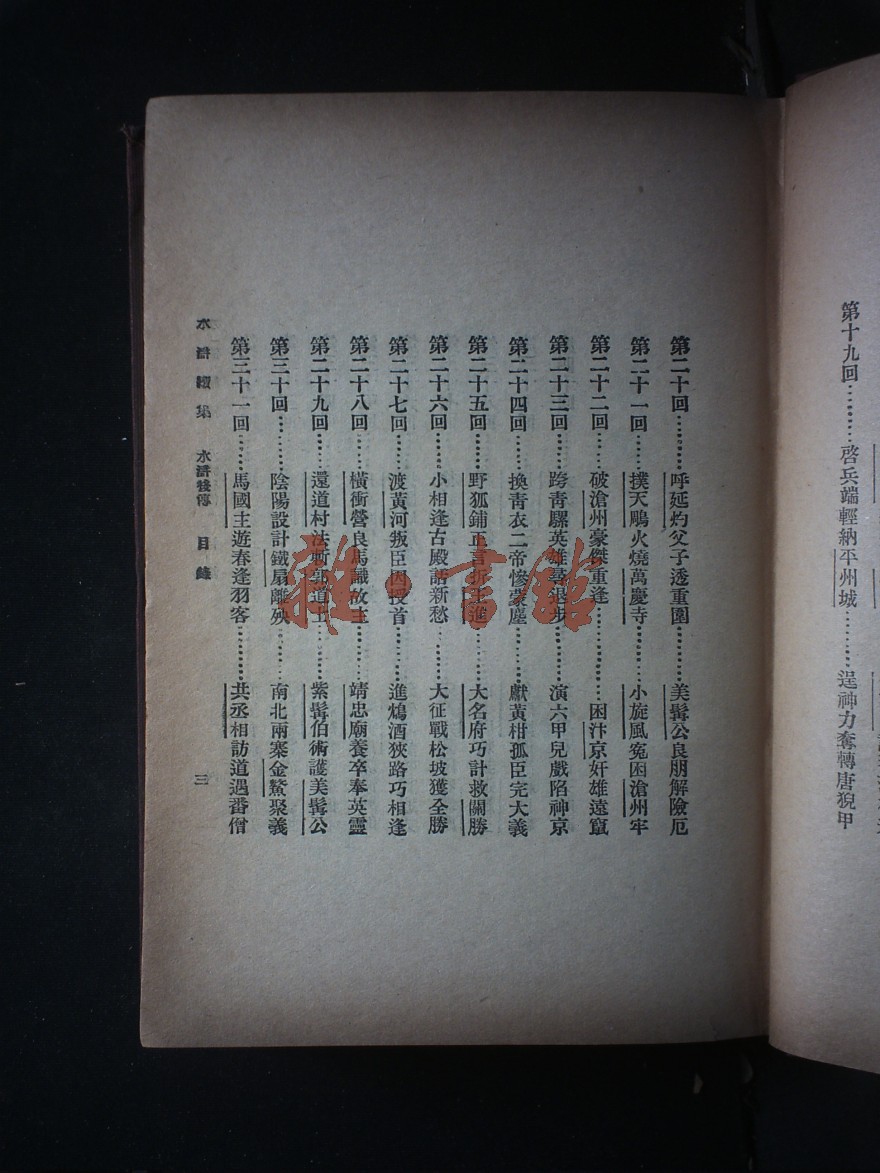 第十九回………啓兵端輕納平州城………逞神力奪轉唐猊甲
第二十回………呼延灼父子透重圍………美髯公良朋解險厄
第二十一回……撲天鵰火燒萬慶寺………小旋風冤困滄州牢
第二十二回……破滄州豪傑重逢…………困汴京奸雄遠竄
第二十三回……跨青騾英雄尋退步………演六甲兒戲陷神京
第二十四回……換青衣二帝慘蒙塵………獻黃柑孤臣完大義
第二十五回……野狐鋪正言折王進………大名府巧計救關勝
第二十六回……小相逢古殿話新愁………大征戰松坡獲全勝
第二十七回……渡黃河叛臣因授首………進鴆酒狹路巧相逢
第二十八回……橫衝營良馬識故主………靖忠廟養卒奉英靈
第二十九回……還道村法斬郭道士………紫髯伯術護美髯公
第三十回………陰陽設計鐵扇離殃………南北兩寨金鰲聚義
第三十一回……馬國主遊春逢羽客………共丞相訪道遇番僧
水滸續集 水滸後傳 目錄 三
雜·書館